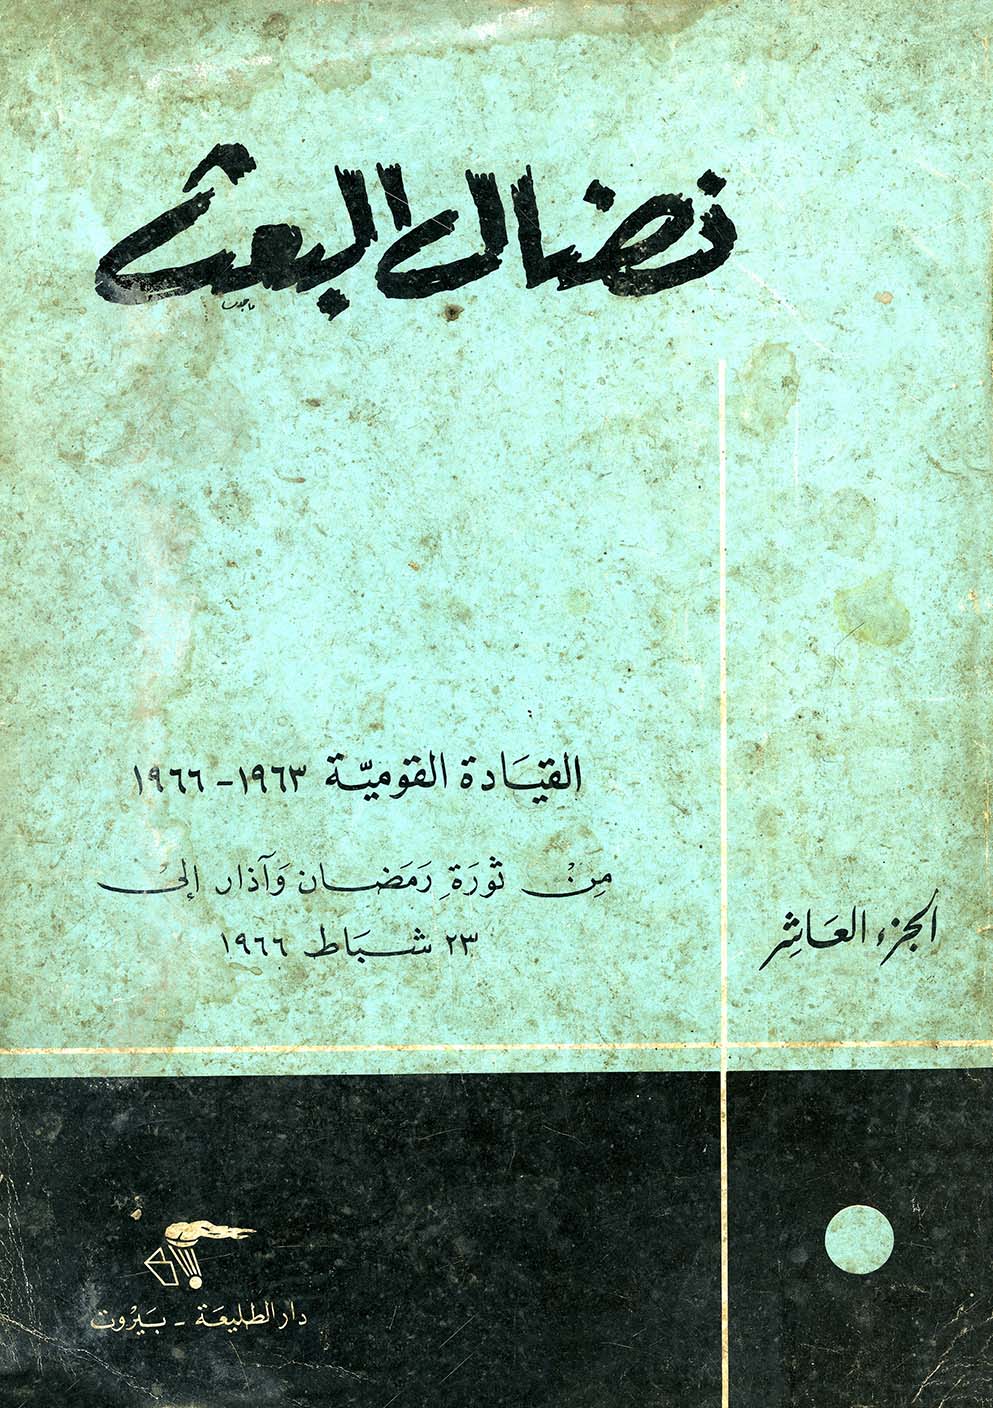 نضال البعث
القيَادة القوميّة ١٩٦٣ - ١٩٦٦
مِنْ ثورَةِ رَمَضان وَآذار إلىْ
٢٣ شبَاط ١٩٦٦
الجزء العَاشِر
دار الطليعَة - بَيْروت